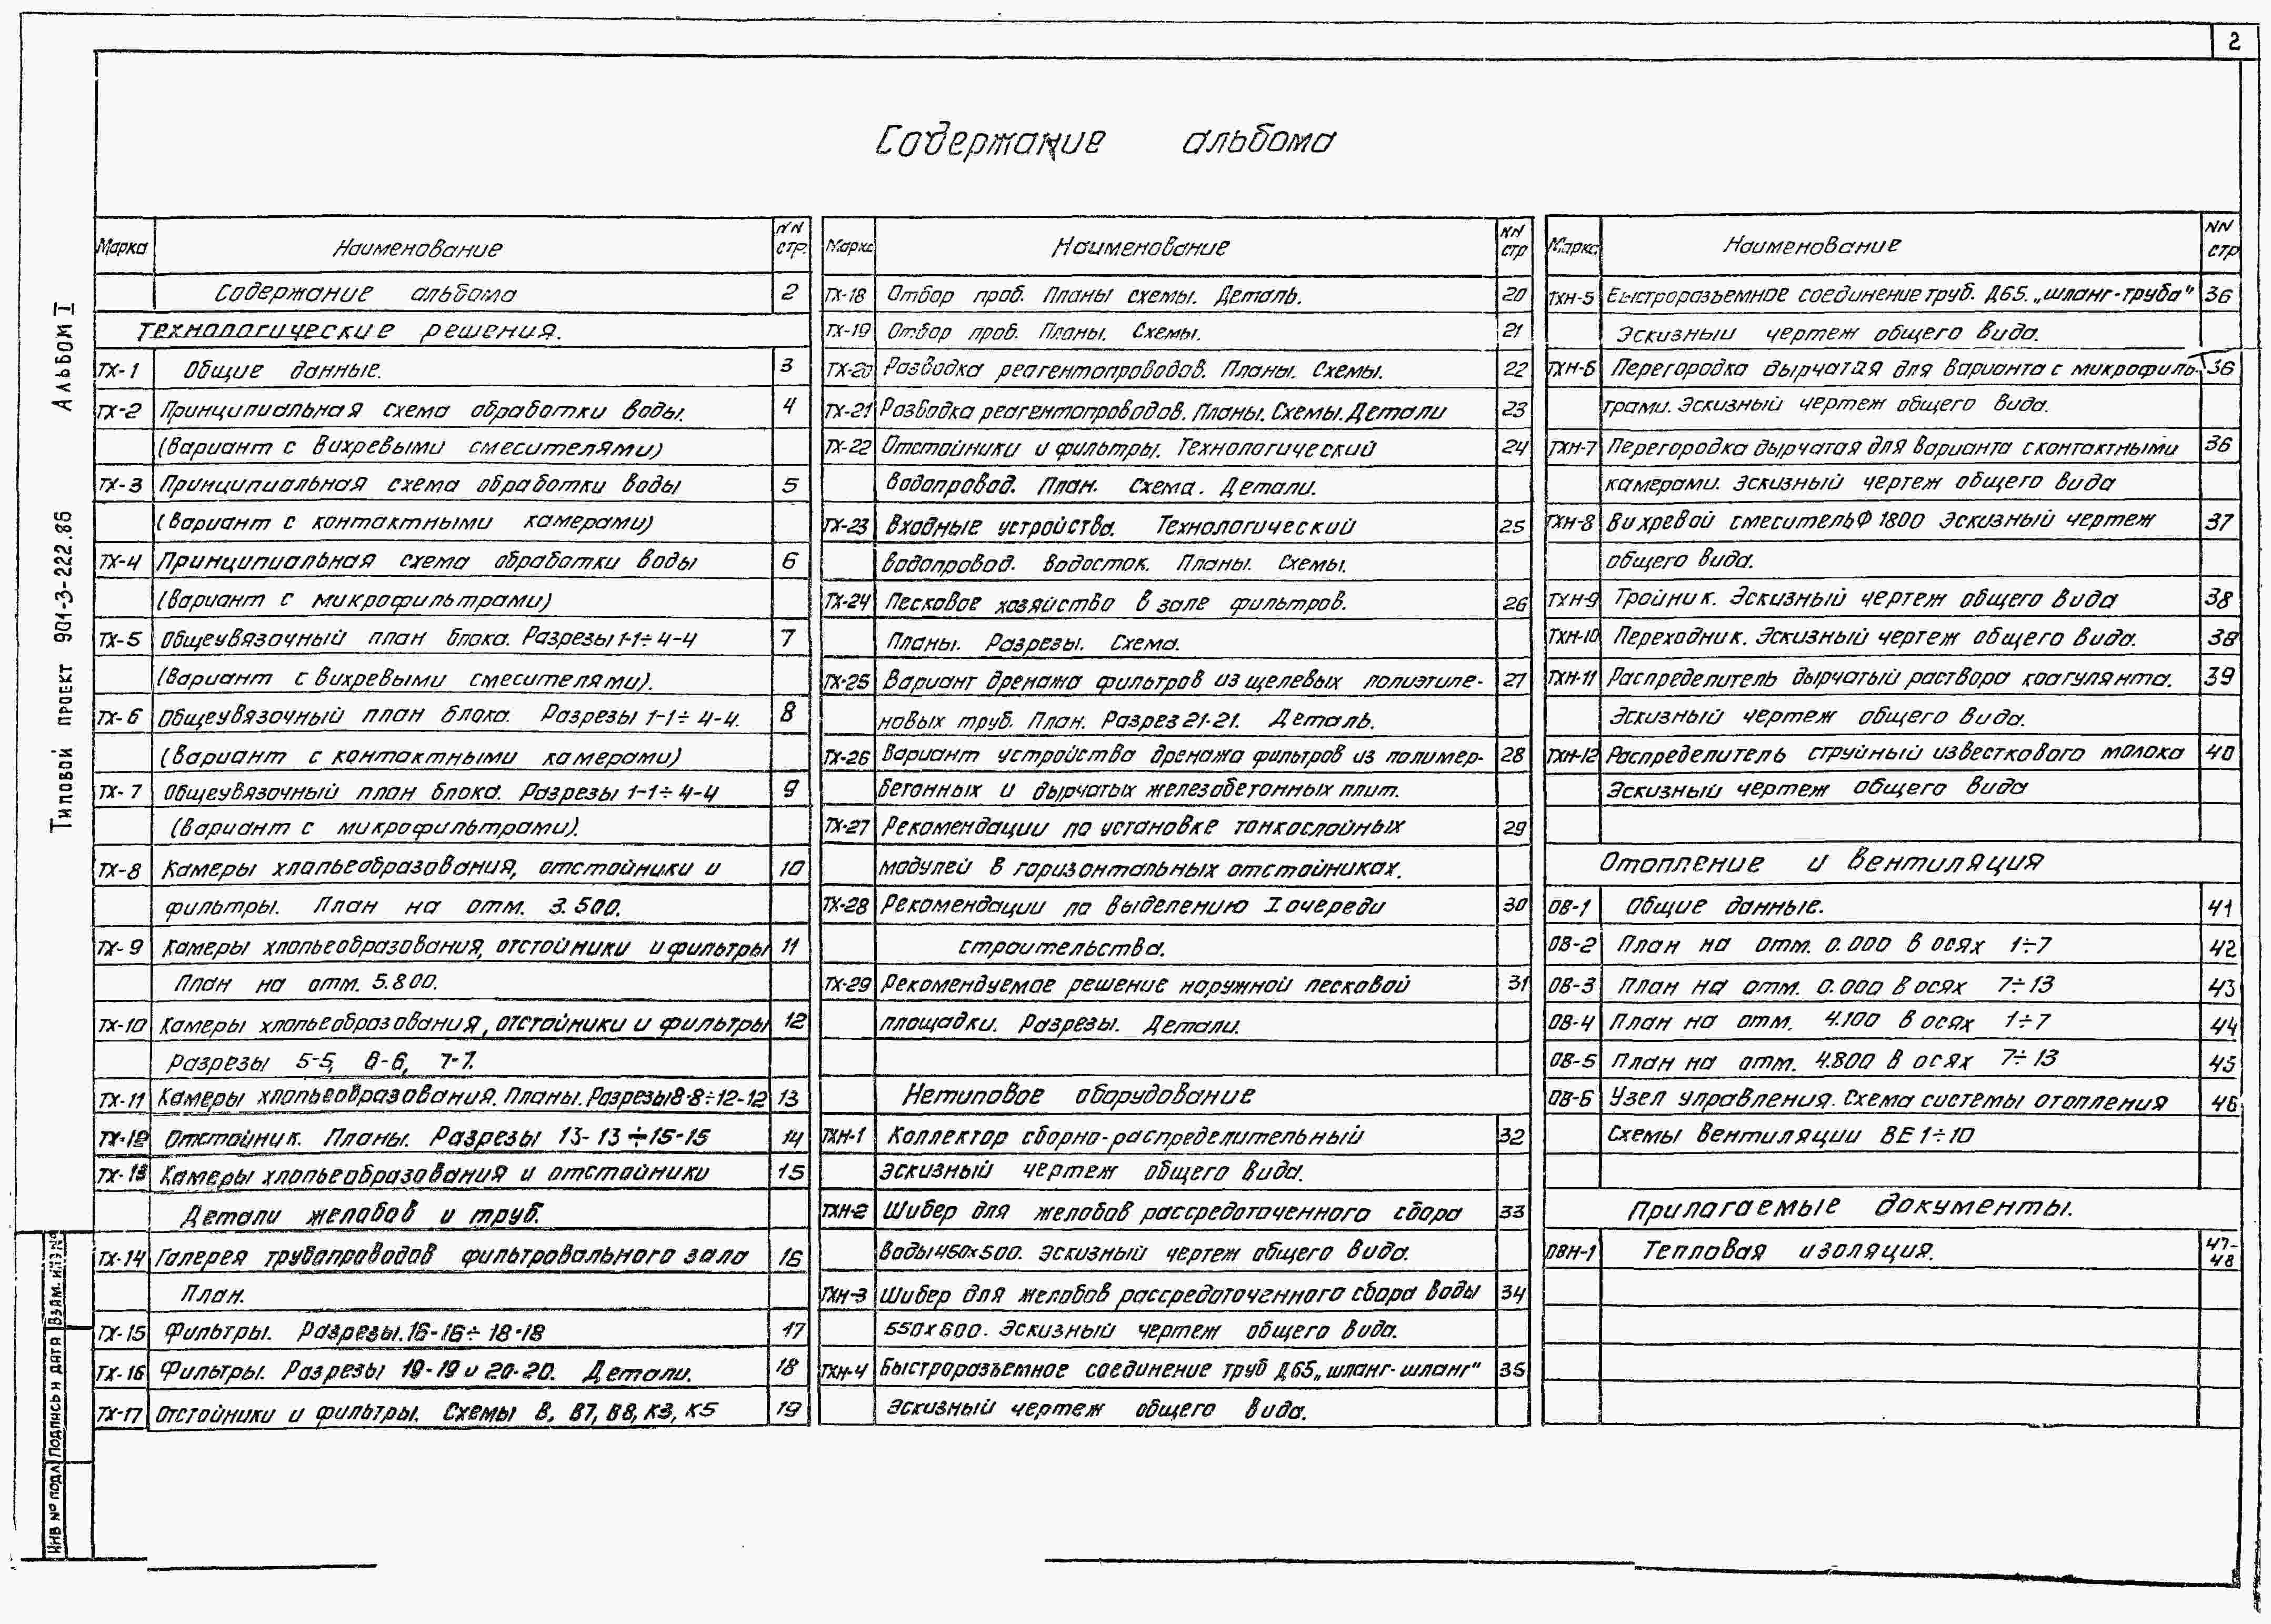 2
Содержание альбома
Марка Наименование NN стр.
Содержание альбома 2
Технологические решения.
ТХ-1 Общие данные. 3
ТХ-2 Принципиальная схема обработки воды. 4
(вариант с вихревыми смесителями)
ТХ-3 Принципиальная схема обработки воды 5
(вариант с контактными камерами)
ТХ-4 Принципиальная схема обработки воды 6
(вариант с микрофильтрами)
ТХ-5 Общеувязочный план блока. Разрезы 1-1÷4-4 7
(вариант с вихревыми смесителями).
ТХ-6 Общеувязочный план блока. Разрезы 1-1÷4-4. 8
(вариант с контактными камерами)
ТХ-7 Общеувязочный план блока. Разрезы 1-1÷4-4 9
(вариант с микрофильтрами).
ТХ-8 Камеры хлопьеобразования, отстойники и 10
фильтры. План на отм. 3.500.
ТХ-9 Камеры хлопьеобразования, отстойники и фильтры 11
План на отм. 5.800.
ТХ-10 Камеры хлопьеобразования, отстойники и фильтры 12
Разрезы 5-5, 6-6, 7-7.
ТХ-11 Камеры хлопьеобразования. Планы. Разрезы 8-8÷12-12 13
ТХ-12 Отстойник. Планы. Разрезы 13-13÷15-15 14
ТХ-13 Камеры хлопьеобразования и отстойники 15
Детали желобов и труб.
ТХ-14 Галерея трубопроводов фильтровального зала 16
План.
ТХ-15 Фильтры. Разрезы. 16-16÷18-18 17
ТХ-16 Фильтры. Разрезы 19-19 и 20-20. Детали. 18
ТХ-17 Отстойники и фильтры. Схемы В, В7, В8, К3, К5 19
Марка Наименование NN стр
ТХ-18 Отбор проб. Планы схемы. Деталь. 20
ТХ-19 Отбор проб. Планы. Схемы. 21
ТХ-20 Разводка реагентопроводов. Планы. Схемы. 22
ТХ-21 Разводка реагентопроводов. Планы. Схемы. Детали 23
ТХ-22 Отстойники и фильтры. Технологический 24
водопровод. План. Схема. Детали.
ТХ-23 Входные устройства. Технологический 25
водопровод. Водосток. Планы. Схемы.
ТХ-24 Песковое хозяйство в зале фильтров. 26
Планы. Разрезы. Схема.
ТХ-25 Вариант дренажа фильтров из щелевых полиэтиле- 27
новых труб. План. Разрез 21-21. Деталь.
ТХ-26 Вариант устройства дренажа фильтров из полимер- 28
бетонных и дырчатых железобетонных плит.
ТХ-27 Рекомендации по установке тонкослойных 29
модулей в горизонтальных отстойниках.
ТХ-28 Рекомендации по выделению I очереди 30
строительства.
ТХ-29 Рекомендуемое решение наружной песковой 31
площадки. Разрезы. Детали.
Нетиповое оборудование
ТХН-1 Коллектор сборно-распределительный 32
эскизный чертеж общего вида.
ТХН-2 Шибер для желобов рассредоточенного сбора 33
воды 450х500. Эскизный чертеж общего вида.
ТХН-3 Шибер для желобов рассредоточенного сбора воды 34
550х600. Эскизный чертеж общего вида.
ТХН-4 Быстроразъемное соединение труб Д65 „шланг-шланг" 35
Эскизный чертеж общего вида.
Марка Наименование NN стр
ТХН-5 Быстроразъемное соединение труб. Д65. „шланг-труба" 36
Эскизный чертеж общего вида.
ТХН-6 Перегородка дырчатая для варианта с микрофиль- 36
трами. Эскизный чертеж общего вида.
ТХН-7 Перегородка дырчатая для варианта с контактными 36
камерами. Эскизный чертеж общего вида
ТХН-8 Вихревой смеситель Ф 1800 Эскизный чертеж 37
общего вида.
ТХН-9 Тройник. Эскизный чертеж общего вида 38
ТХН-10 Переходник. Эскизный чертеж общего вида. 38
ТХН-11 Распределитель дырчатый раствора коагулянта. 39
Эскизный чертеж общего вида.
ТХН-12 Распределитель струйный известкового молока 40
Эскизный чертеж общего вида
Отопление и вентиляция
ОВ-1 Общие данные. 41
ОВ-2 План на отм. 0.000 в осях 1÷7 42
ОВ-3 План на отм. 0.000 в осях 7÷13 43
ОВ-4 План на отм. 4.100 в осях 1÷7 44
ОВ-5 План на отм. 4.800 в осях 7÷13 45
ОВ-6 Узел управления. Схема системы отопления 46
Схемы вентиляции ВЕ1÷10
Прилагаемые документы.
ОВН-1 Тепловая изоляция. 47-48
Типовой проект 901-3-222.86 Альбом I
Инв № подл Подпись и дата Взам. инв №